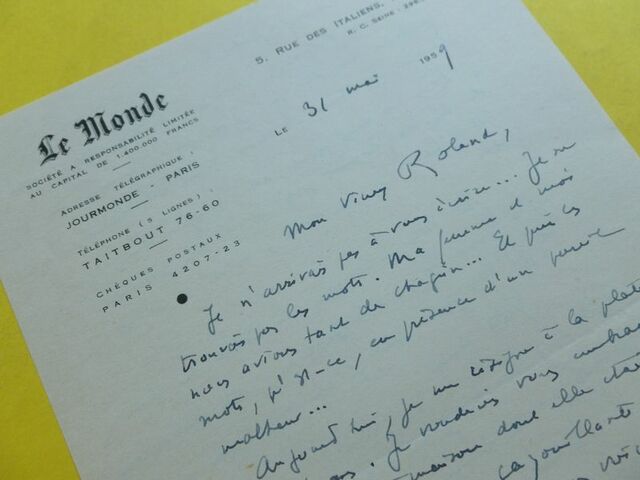 5, RUE DES ITALIENS,
R. C. SEINE
Le Monde
SOCIÉTÉ A RESPONSABILITÉ LIMITÉE
AU CAPITAL DE 1.400.000 FRANCS
ADRESSE TÉLÉGRAPHIQUE :
JOURMONDE - PARIS
TÉLÉPHONE (5 LIGNES) :
TAITBOUT 76-60
CHÈQUES POSTAUX
PARIS 4207-23
LE 31 mai 1959
Mon vieux Roland,
Je n'arrivais pas à vous écrire... Je ne
trouvais pas les mots. Ma femme et moi
nous avions tant de chagrin... Et puis les
mots, qu'est-ce, en présence d'un pareil
malheur...
Aujourd'hui, je me résigne à la
Je voudrais vous
maison dont elle était